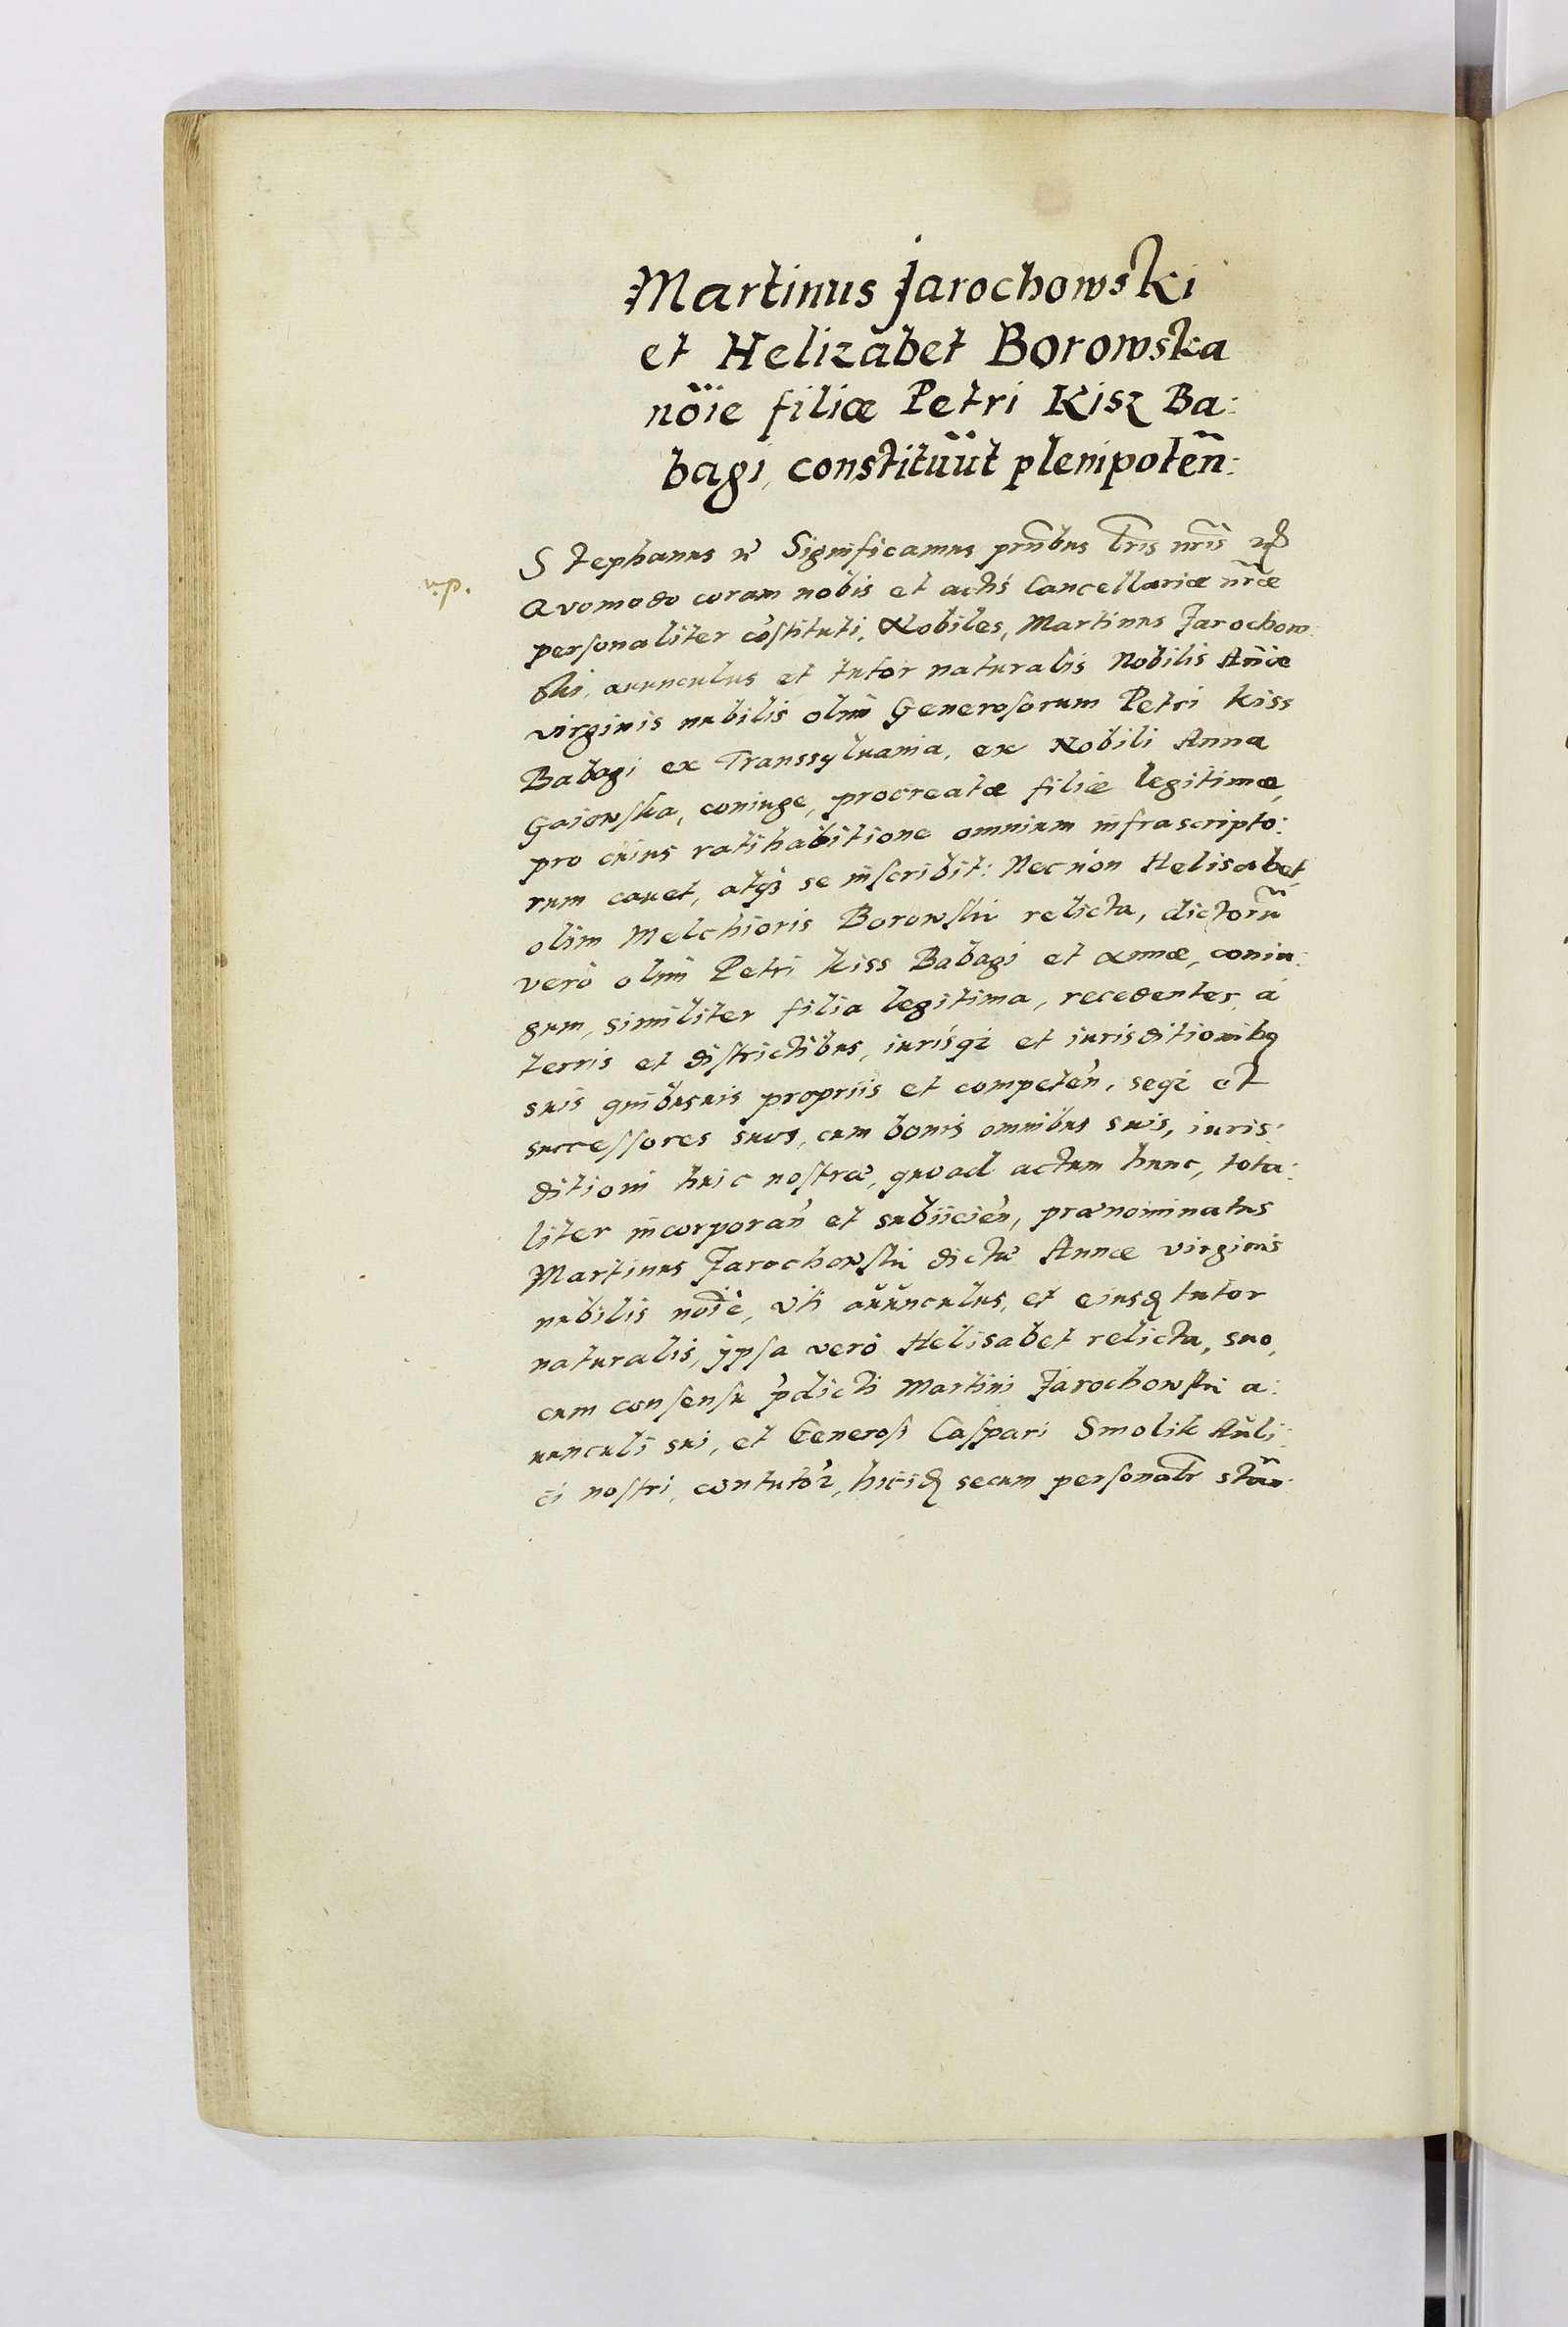 Martinus Jarochowski
et Helizabet Borowska
nõie filiæ Petri Kisz Ba:
bagi, constituũt plenipoteñ:
Stephanus Significamus prñbus lr̃is nr̃is
n.p.
Quomodo coram nobis et actis Cancellariæ nr̃æ
personaliter cõstituti, Nobiles, Martinus Jarochow:
ski, auunculus et tutor naturalis Nobilis Añæ
virginis nubilis olim Generosorum Petri Kiss
Babagi ex Transsyluania, ex Nobili Anna
Gaiowska, coniuge, procreatæ filiæ legitimæ,
pro cuius ratihabitione omnium infrascripto:
rum cauet, atq3 se inscribit: Necnon Helisabet
olim Melchioris Borowski relicta, dictorũ
vero olim Petri Kiss Babagi et Annæ, coniu:
gum, similiter filia legitima, recedentes à
terris et districtibus, iurisq3 et iurisditionibq
suis quibusuis propriis et competeñ, seq3 et
successores suos, cum bonis omnibus suis, iuris:
ditioni huic nostræ, quoad actum hunc, tota:
liter incorporañ et subiicieñ, prænominatus
Martinus Jarochowski dictæ Annæ virginis
nubilis nõie, vti auunculus, et eiusđ tutor
naturalis, ypsa vero Helisabet relicta, suo,
cum consensu p̃dicti Martini Jarochowski a:
uunculi sui, et Generosi Caspari Smolik Auli:
ci nostri, contutor, hicidđ secum personalr̃ stañ: